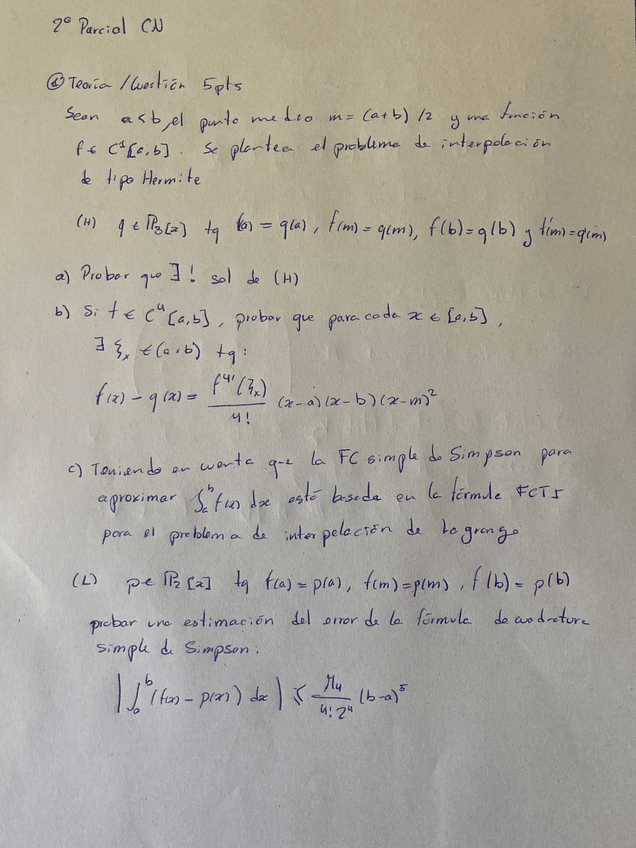 2º Parcial CN
① Teoría / Cuestión 5pts
Sean a<b, el punto medio m = (a+b)/2 y una función
f ∈ C¹[a,b]. Se plantea el problema de interpolación
de tipo Hermite
(H) q ∈ ℙ₃[x] tq f(a) = q(a), f(m) = q(m), f(b) = q(b) y f'(m) = q'(m)
a) Probar que ∃! sol de (H)
b) Si f ∈ C⁴[a,b], probar que para cada x ∈ [a,b],
∃ ξₓ ∈ (a,b) tq:
f(x) - q(x) = f⁴'(ξₓ) / 4! (x-a)(x-b)(x-m)²
c) Teniendo en cuenta que la FC simple de Simpson para
aproximar ∫ₐᵇ f(x) dx está basada en la fórmula FCTI
para el problema de interpolación de Lagrange
(L) p ∈ ℙ₂[x] tq f(a) = p(a), f(m) = p(m), f(b) = p(b)
probar una estimación del error de la fórmula de cuadratura
simple de Simpson:
|∫ₐᵇ (f(x) - p(x)) dx| ≤ M₄ / 4! 2⁴ (b-a)⁵